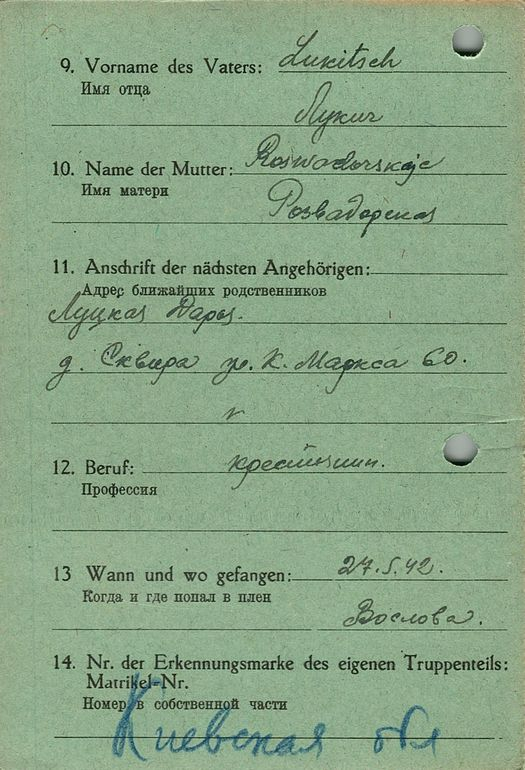 9. Vorname des Vaters: Lukitsch
Имя отца
Лукич
10. Name der Mutter: Roswadorskaje
Имя матери
Розвадорская
11. Anschrift der nächsten Angehörigen:
Адрес ближайших родственников
Луцкая Дарья.
д. Сквира ул. К. Маркса 60.
12. Beruf: крестьянин.
Профессия
13 Wann und wo gefangen: 27.5.42.
Когда и где попал в плен
Вослова.
14. Nr. der Erkennungsmarke des eigenen Truppenteils:
Matrikel-Nr.
Номер в собственной части
Киевская обл